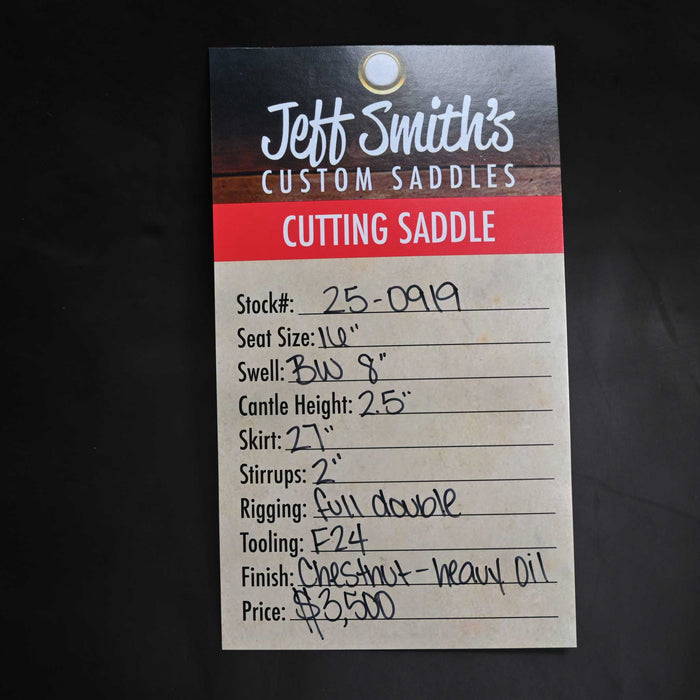 Jeff Smith's
CUSTOM SADDLES
CUTTING SADDLE
Stock#: 25-0919
Seat Size: 16"
Swell: BW 8"
Cantle Height: 2.5"
Skirt: 27"
Stirrups: 2"
Rigging: full double
Tooling: F24
Finish: Chestnut-heavy oil
Price: $3,500